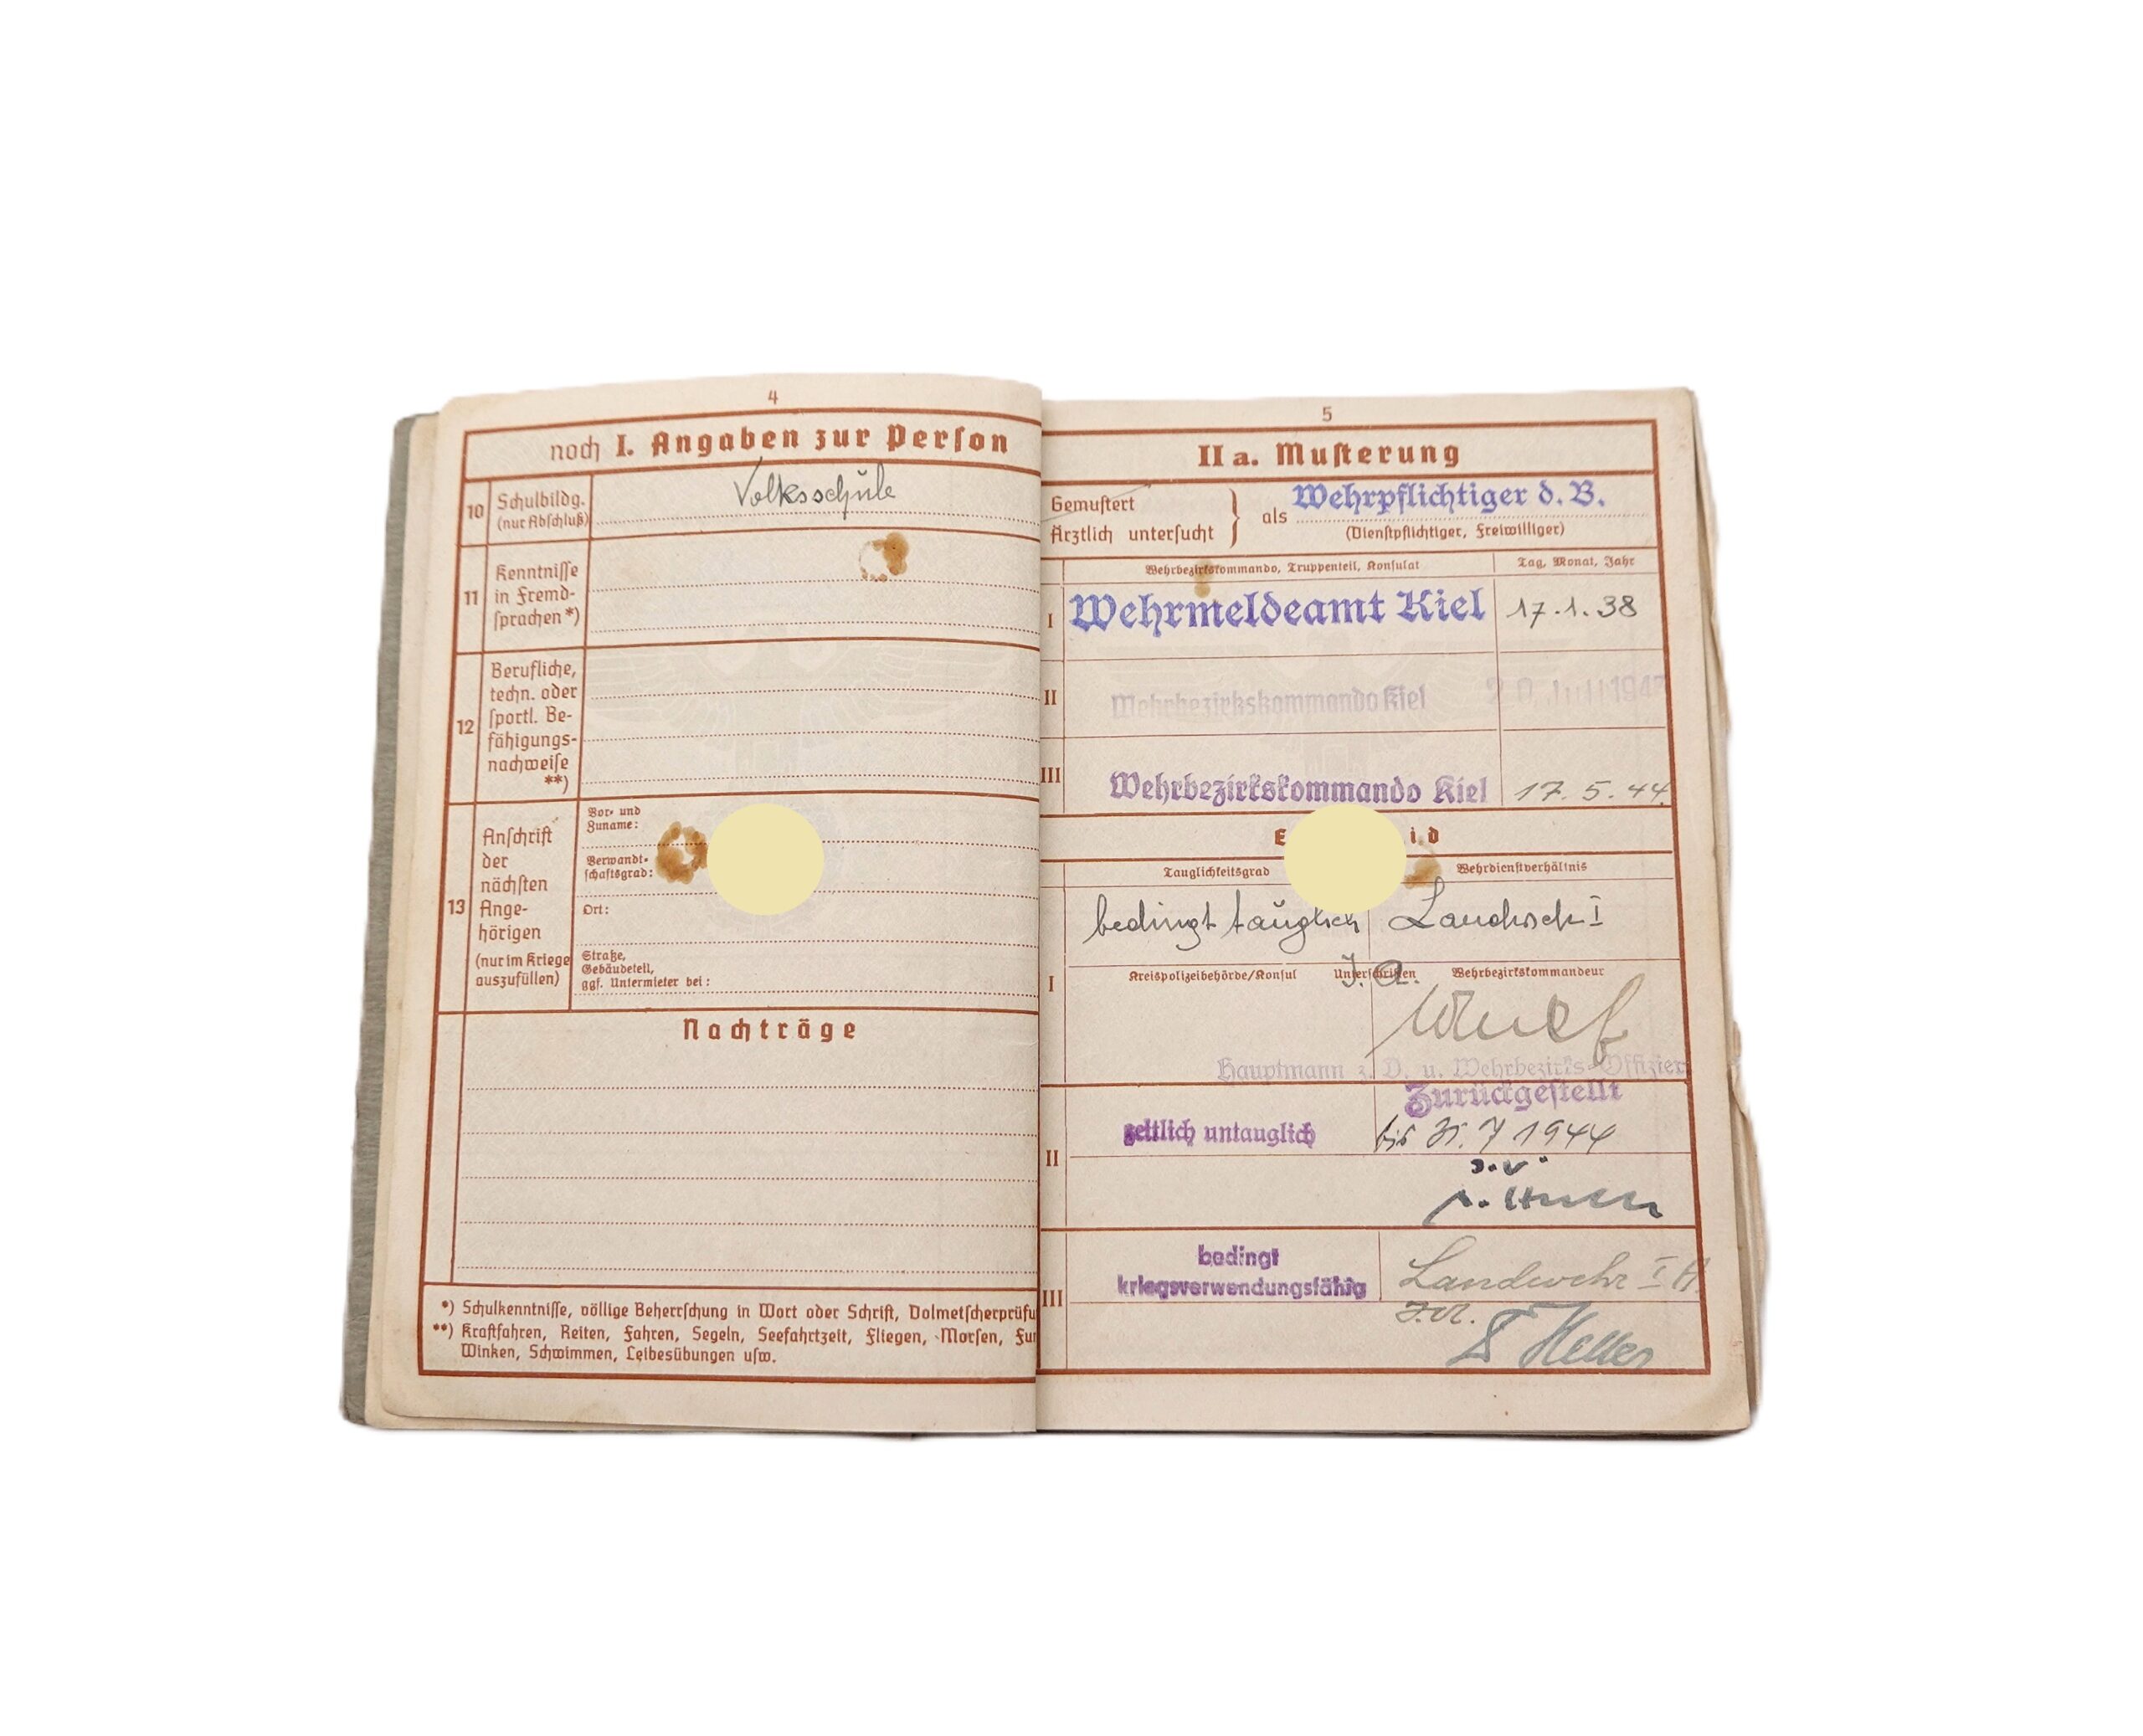 4
noch I. Angaben zur Perſon
10 Schulbildg. (nur Abſchluß)
Volksschule
11 Kenntniſſe in Fremd-ſprachen *)
12 Berufliche, techn. oder ſportl. Be-fähigungs-nachweiſe **)
13 Anſchrift der nächſten Ange-hörigen (nur im Kriege auszufüllen)
Vor- und Zuname:
Verwandt-ſchaftsgrad:
Ort:
Straße, Gebäudeteil, ggf. Untermieter bei:
Nachträge
*) Schulkenntniſſe, völlige Beherrſchung in Wort oder Schrift, Dolmetſcherprüfu
**) Kraftfahren, Reiten, Fahren, Segeln, Seefahrtzeit, Fliegen, Morſen, Fun
Winken, Schwimmen, Leibesübungen uſw.
5
II a. Muſterung
Gemuſtert
Ärztlich unterſucht
als Wehrpflichtiger d. B.
(Dienſtpflichtiger, Freiwilliger)
Wehrbezirkskommando, Truppenteil, Konſulat
Tag, Monat, Jahr
I Wehrmeldeamt Kiel 17.1.38
II Wehrbezirkskommando Kiel
III Wehrbezirkskommando Kiel 17.5.44.
E i d
Tauglichkeitsgrad
Wehrdienſtverhältnis
I
bedingt tauglich
I
Kreispolizeibehörde/Konſul
Unterſchriften
Wehrbezirkskommandeur
Hauptmann z. D. u. Wehrbezirks-Offizier
II
zeitlich untauglich
Zurückgeſtellt
bis 31.7 1944
III
bedingt
kriegsverwendungsfähig
Landwehr I A.
Heller